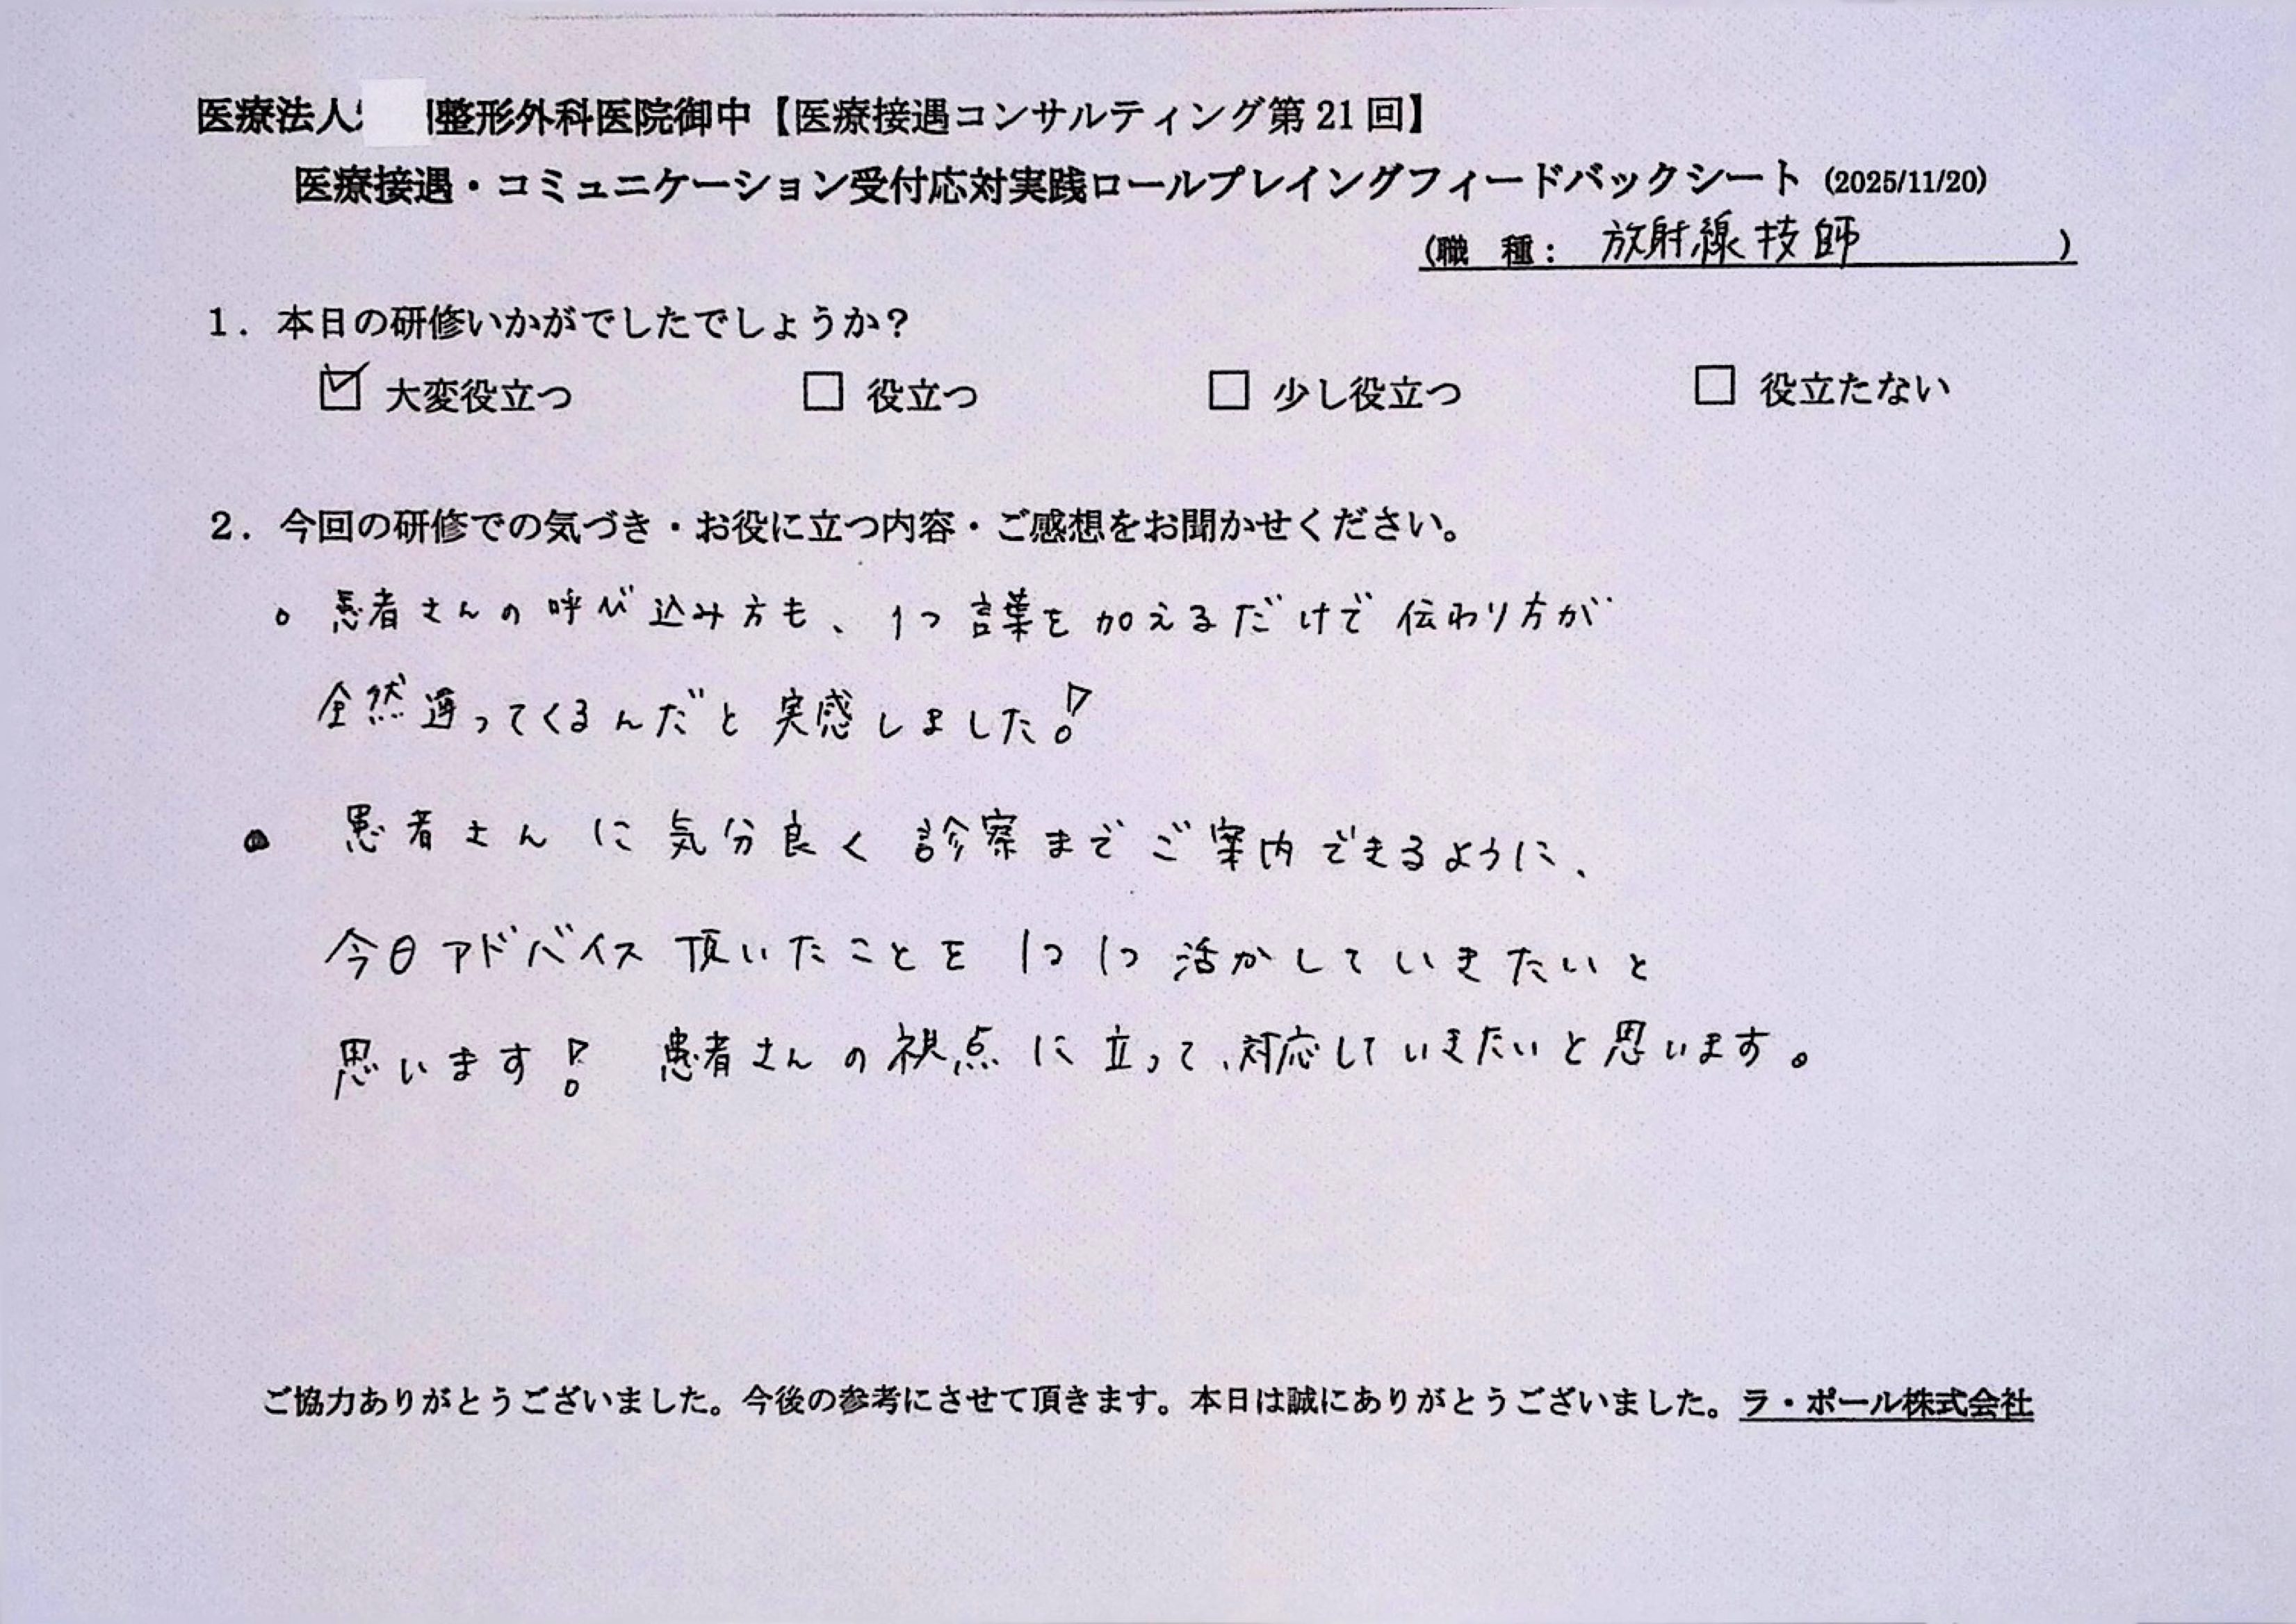 医療法人 整形外科医院御中【医療接遇コンサルティング第21回】
医療接遇・コミュニケーション受付応対実践ロールプレイングフィードバックシート (2025/11/20)
(職 種： 放射線技師 )
1．本日の研修いかがでしたでしょうか？
☑ 大変役立つ □ 役立つ □ 少し役立つ □ 役立たない
2．今回の研修での気づき・お役に立つ内容・ご感想をお聞かせください。
○ 患者さんの呼び込み方も、1つ言葉を加えるだけで伝わり方が
全然違ってくるんだと実感しました！
● 患者さんに気分良く診察までご案内できるように、
今日アドバイス頂いたことを1つ1つ活かしていきたいと
思います！ 患者さんの視点に立って、対応していきたいと思います。
ご協力ありがとうございました。今後の参考にさせて頂きます。本日は誠にありがとうございました。ラ・ポール株式会社